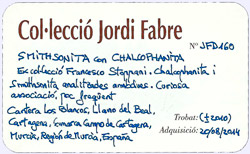 Col·lecció Jordi Fabre
Nº JFD160
SMITHSONITA con CHALCOPHANITA
Ex colección Francesco Stoppani. Chalcophanita i
Smithsonita analitzades ambdues. Curiosa
associació, poc freqüent
Cantera Los Blancos, Llano del Beal,
Cartagena, Comarca Campo de Cartagena,
Murcia, Región de Murcia, España
Trobat: (±2010)
Adquisició: 20/08/2014